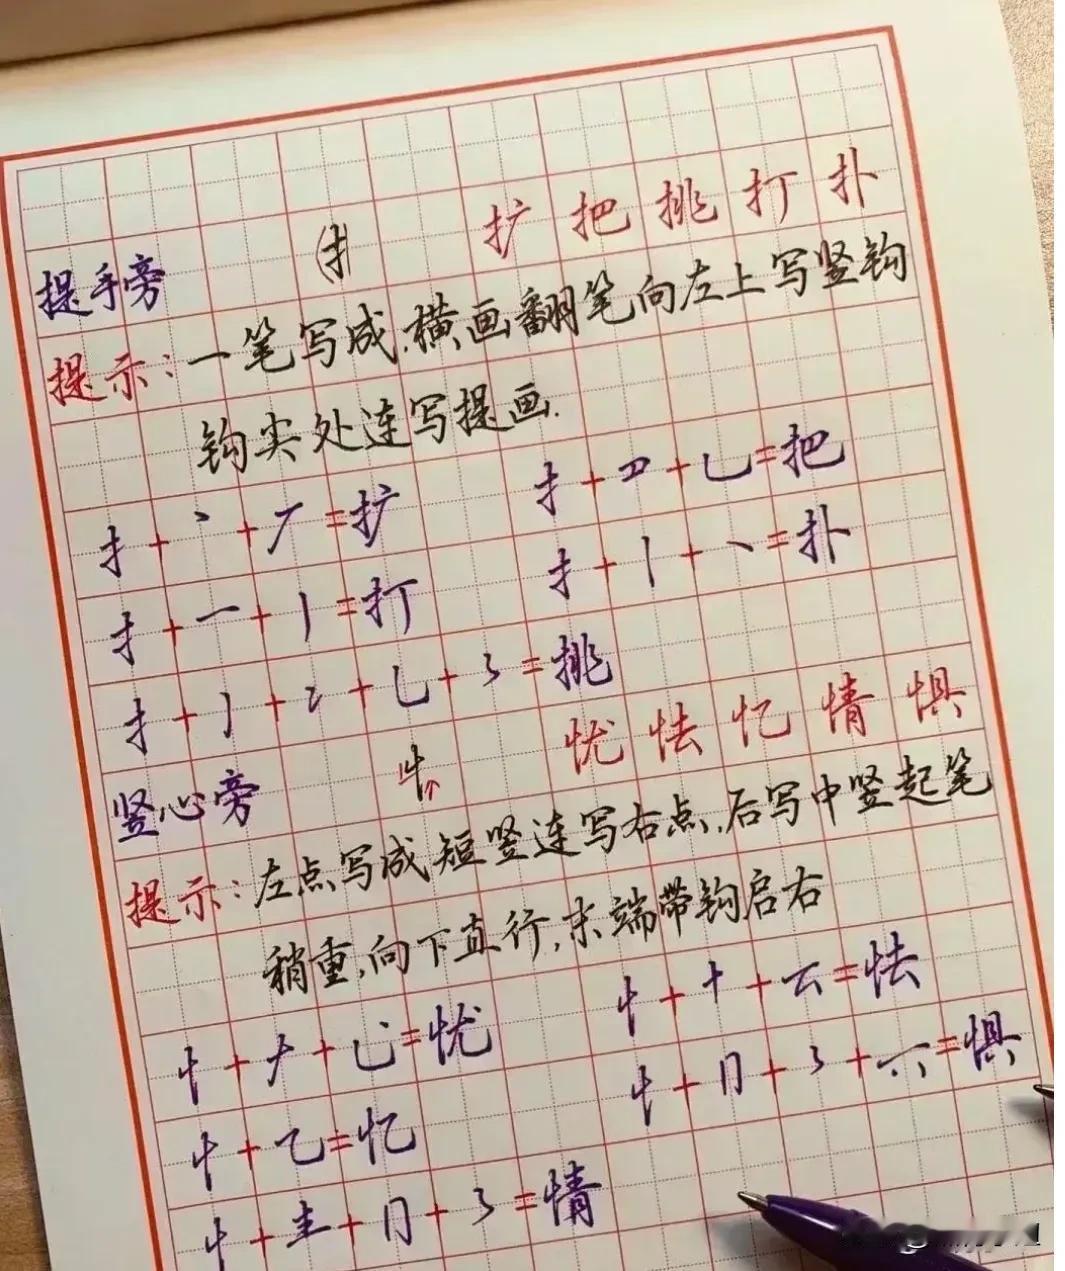 提手旁 扌 扩 把 挑 打 扑
提示：一笔写成，横画翻笔向左上写竖钩
钩尖处连写提画.
扌+丶+𠂆=扩 扌+𠃜+乚=把
扌+一+亅=打 扌+丨+丶=扑
扌+丿+冫+乚+㇋=挑
竖心旁 忄 忧 怯 忆 情 惧
提示：左点写成短竖连写右点，后写中竖起笔
稍重，向下直行，末端带钩启右
忄+𠂇+乚丶=忧 忄+十+厶=怯
忄+乙=忆 忄+冂+㇋+一八=惧
忄+龶+冂+㇋=情